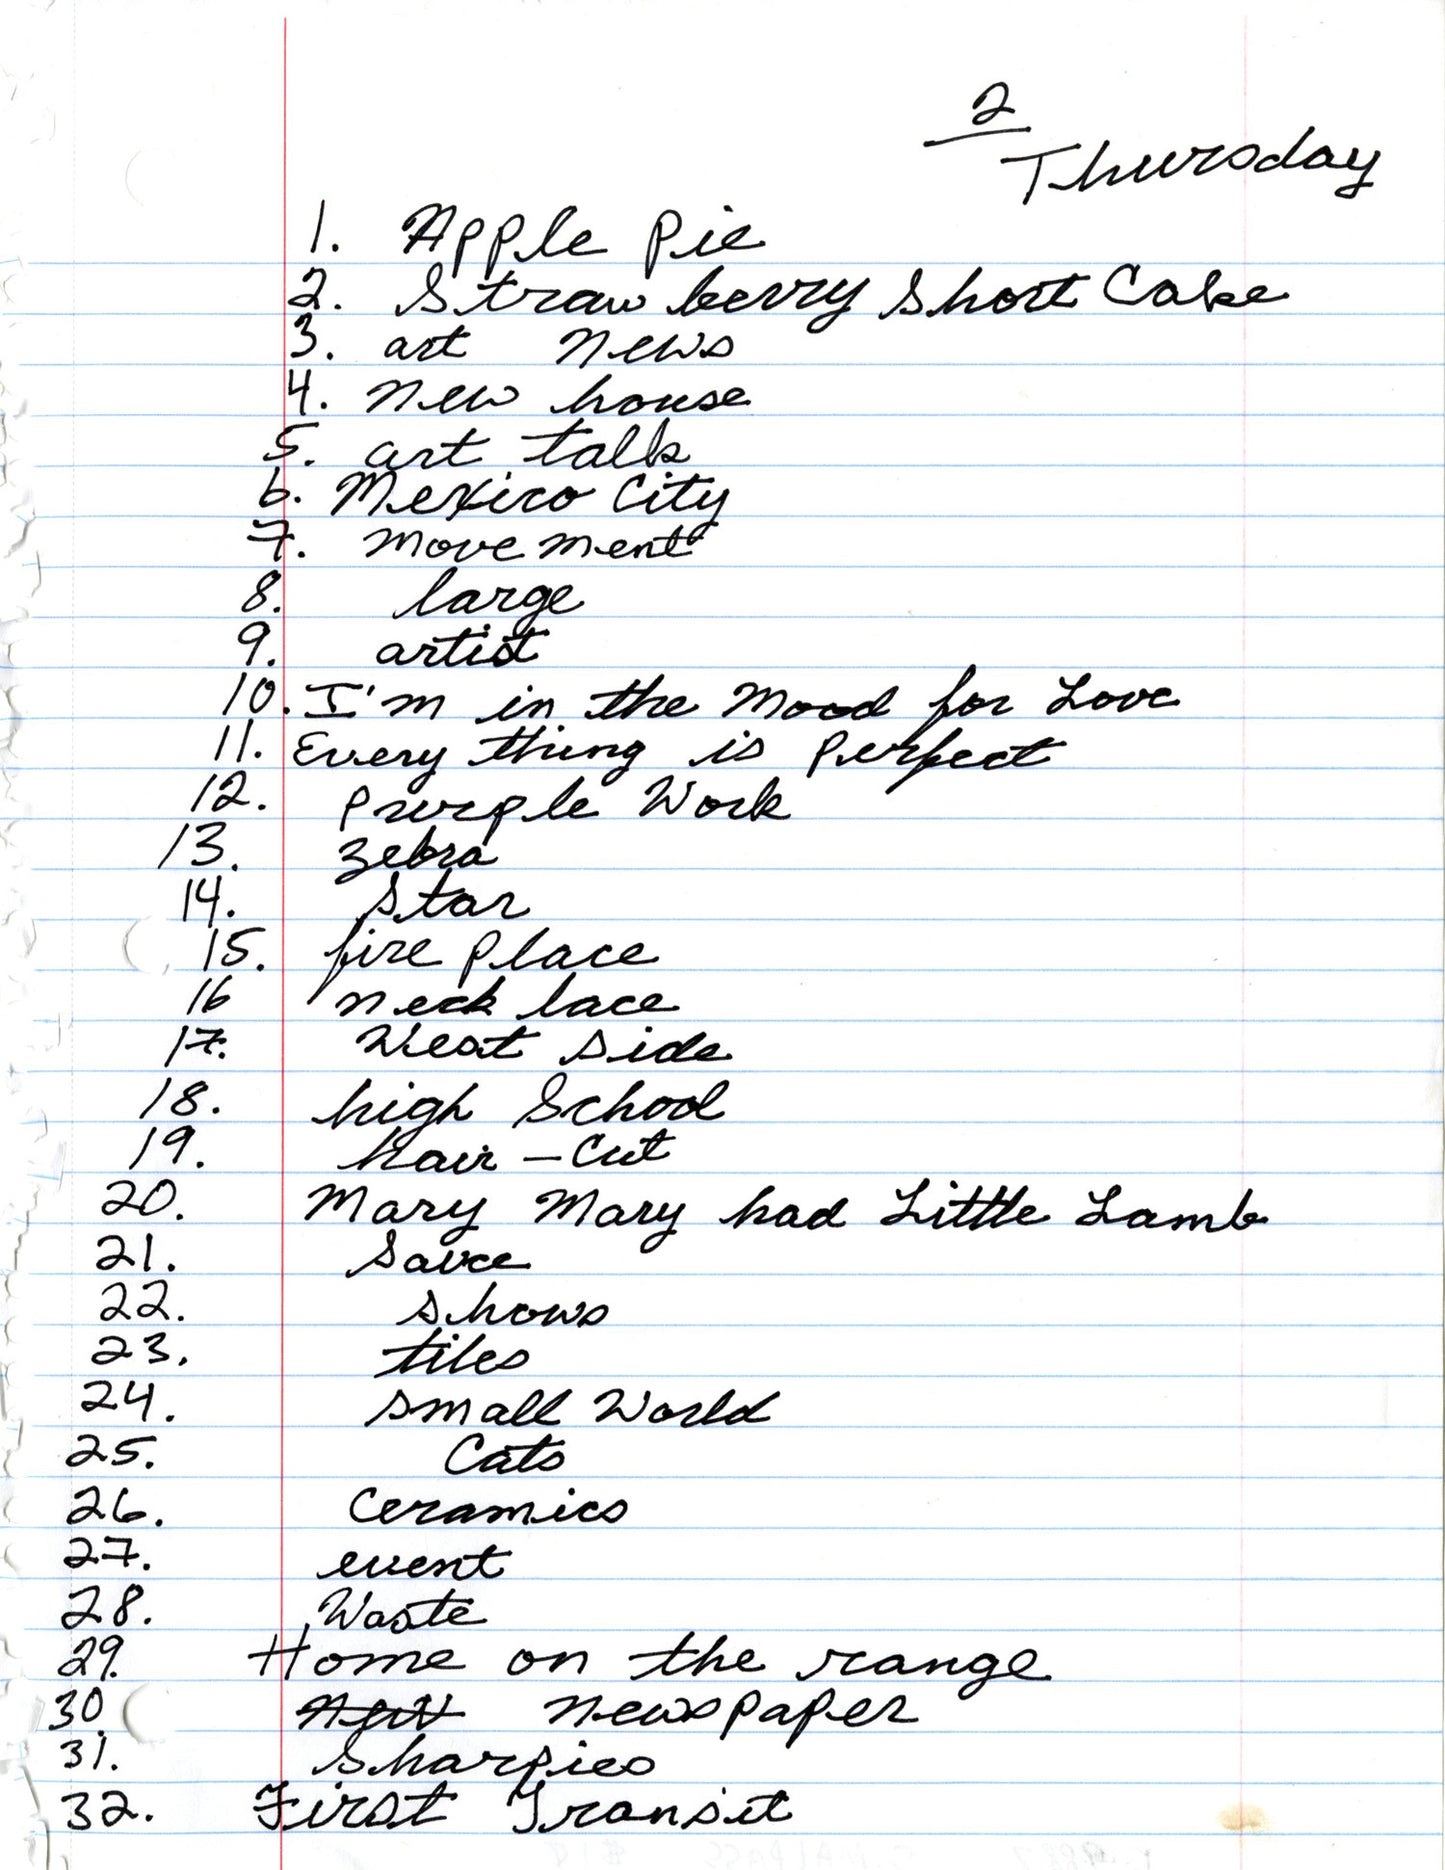 2
Thursday
1. Apple Pie
2. Strawberry Short Cake
3. art news
4. new house
5. art talk
6. Mexico City
7. movement
8. large
9. artist
10. I'm in the Mood for Love
11. Every thing is perfect
12. Purple Work
13. zebra
14. Star
15. fire place
16 neck lace
17. West side
18. high School
19. hair-cut
20. Mary Mary had Little Lamb
21. Sauce
22. shows
23. tiles
24. small World
25. Cats
26. Ceramics
27. event
28. Waste
29. Home on the range
30. newspaper
31. Sharpies
32. First Transit